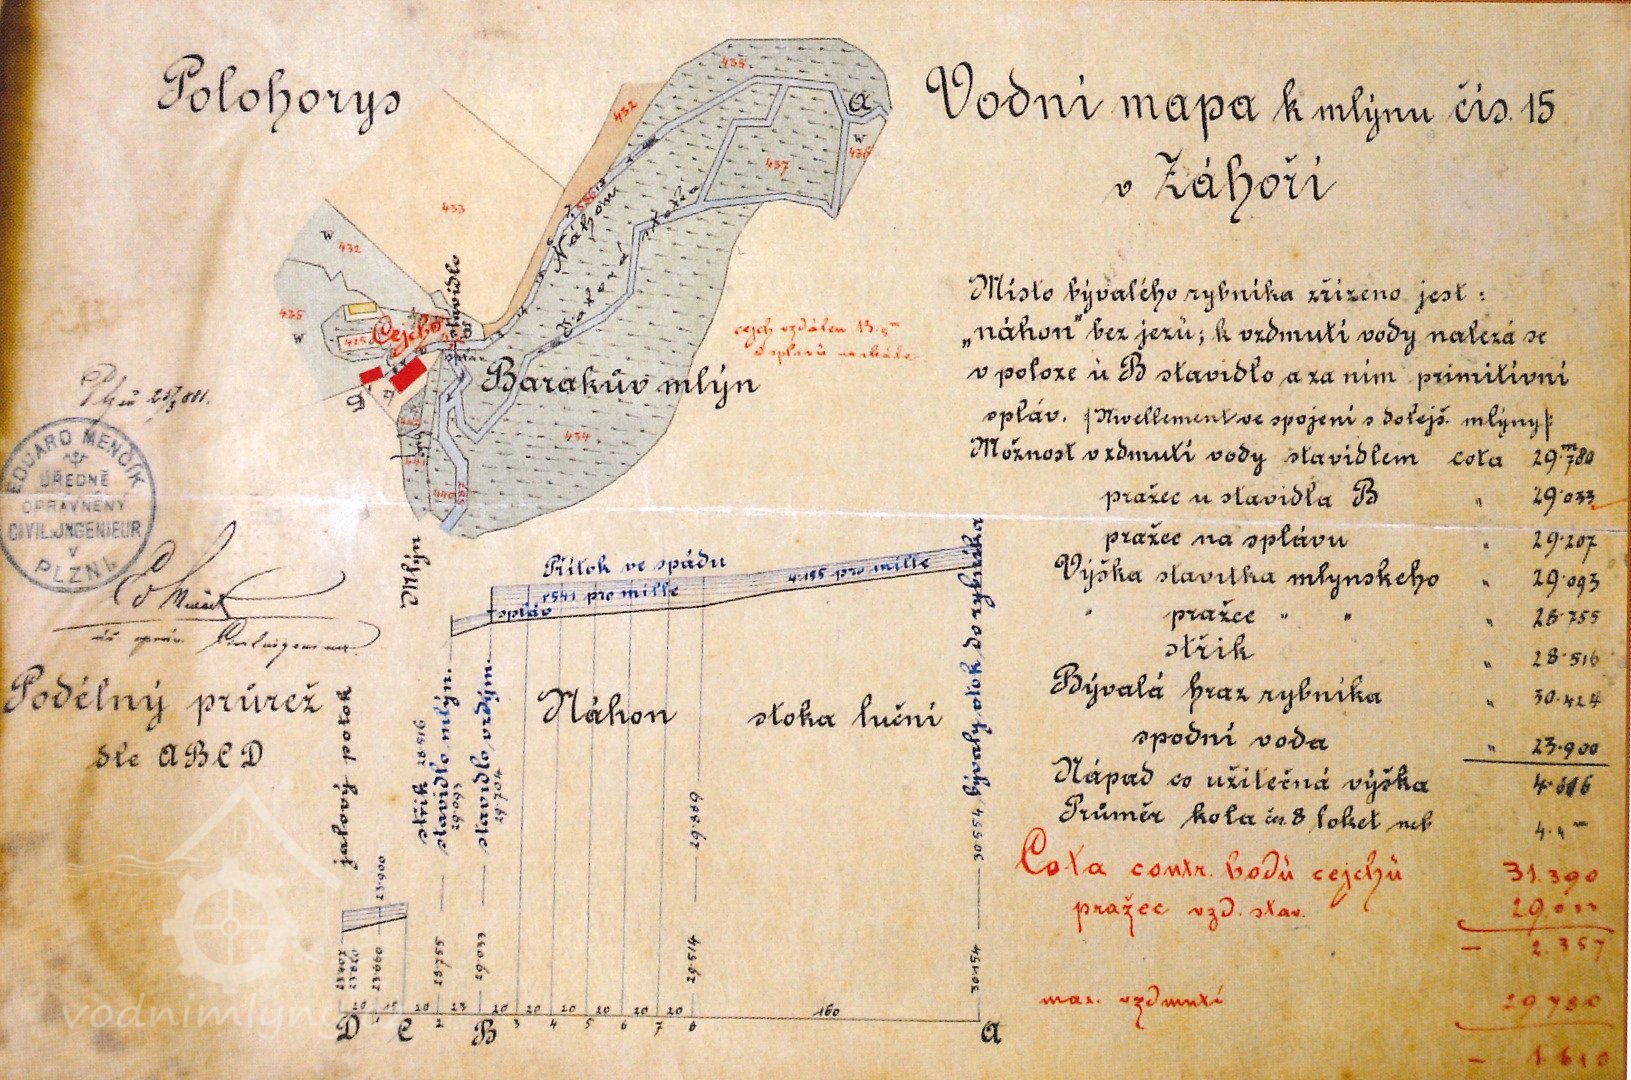 Polohorys
Vodní mapa k mlýnu čís. 15
v Záhoří
435
a
432
W
436
437
433
W
432
Náhon
stoka
stavidlo
435
W
Cejch
cejch vzdálen 13
Barakův mlýn
434
440
441
Místo bývalého rybníka zřízeno jest :
„náhon" bez jezů; k vzdmutí vody nalezá se
v poloze u B stavidlo a za ním primitivní
spláv. (Nivellement ve spojení s dolejš. mlýny):
Možnost vzdmutí vody stavidlem cota 29.780
pražec u stavidla B " 29.033
pražec na splávu " 29.207
Výška stavitka mlynskeho " 29.093
" pražec " " " 28.755
střik " 28.516
Bývalá hraz rybníka " 30.424
spodní voda " 23.900
Nápad co užitečná výška 4.616
Průměr kola čn. 8 loket neb 4.
Cota contr. bodů cejchů 31.390
pražec vzd. stav. 29.033
– 2.357
max. vzdmutí 29.780
– 1.610
EDUARD MENČÍK
ÚŘEDNĚ
OPRÁVNĚNÝ
CIVIL.INGENIEUR
V
PLZNI.
Podélný průřež
dle ABCD
Mlýn
Přítok ve spádu
1.541 pro mille
4.155 pro mille
spláv
Náhon
stoka luční
jalový potok
střik 28.516
stavidlo mlýn.
29.093
stavidlo vzdým.
29.704
29.889
30.554 bývalý otok do rybníka
23.900
23.407
23.820
23.660
28.755
29.033
29.514
30.154
20 15 20 23 20 20 20 20 20 20 160
D 1 C 2 B 3 4 5 6 7 8 a
vodnimlyny.cz